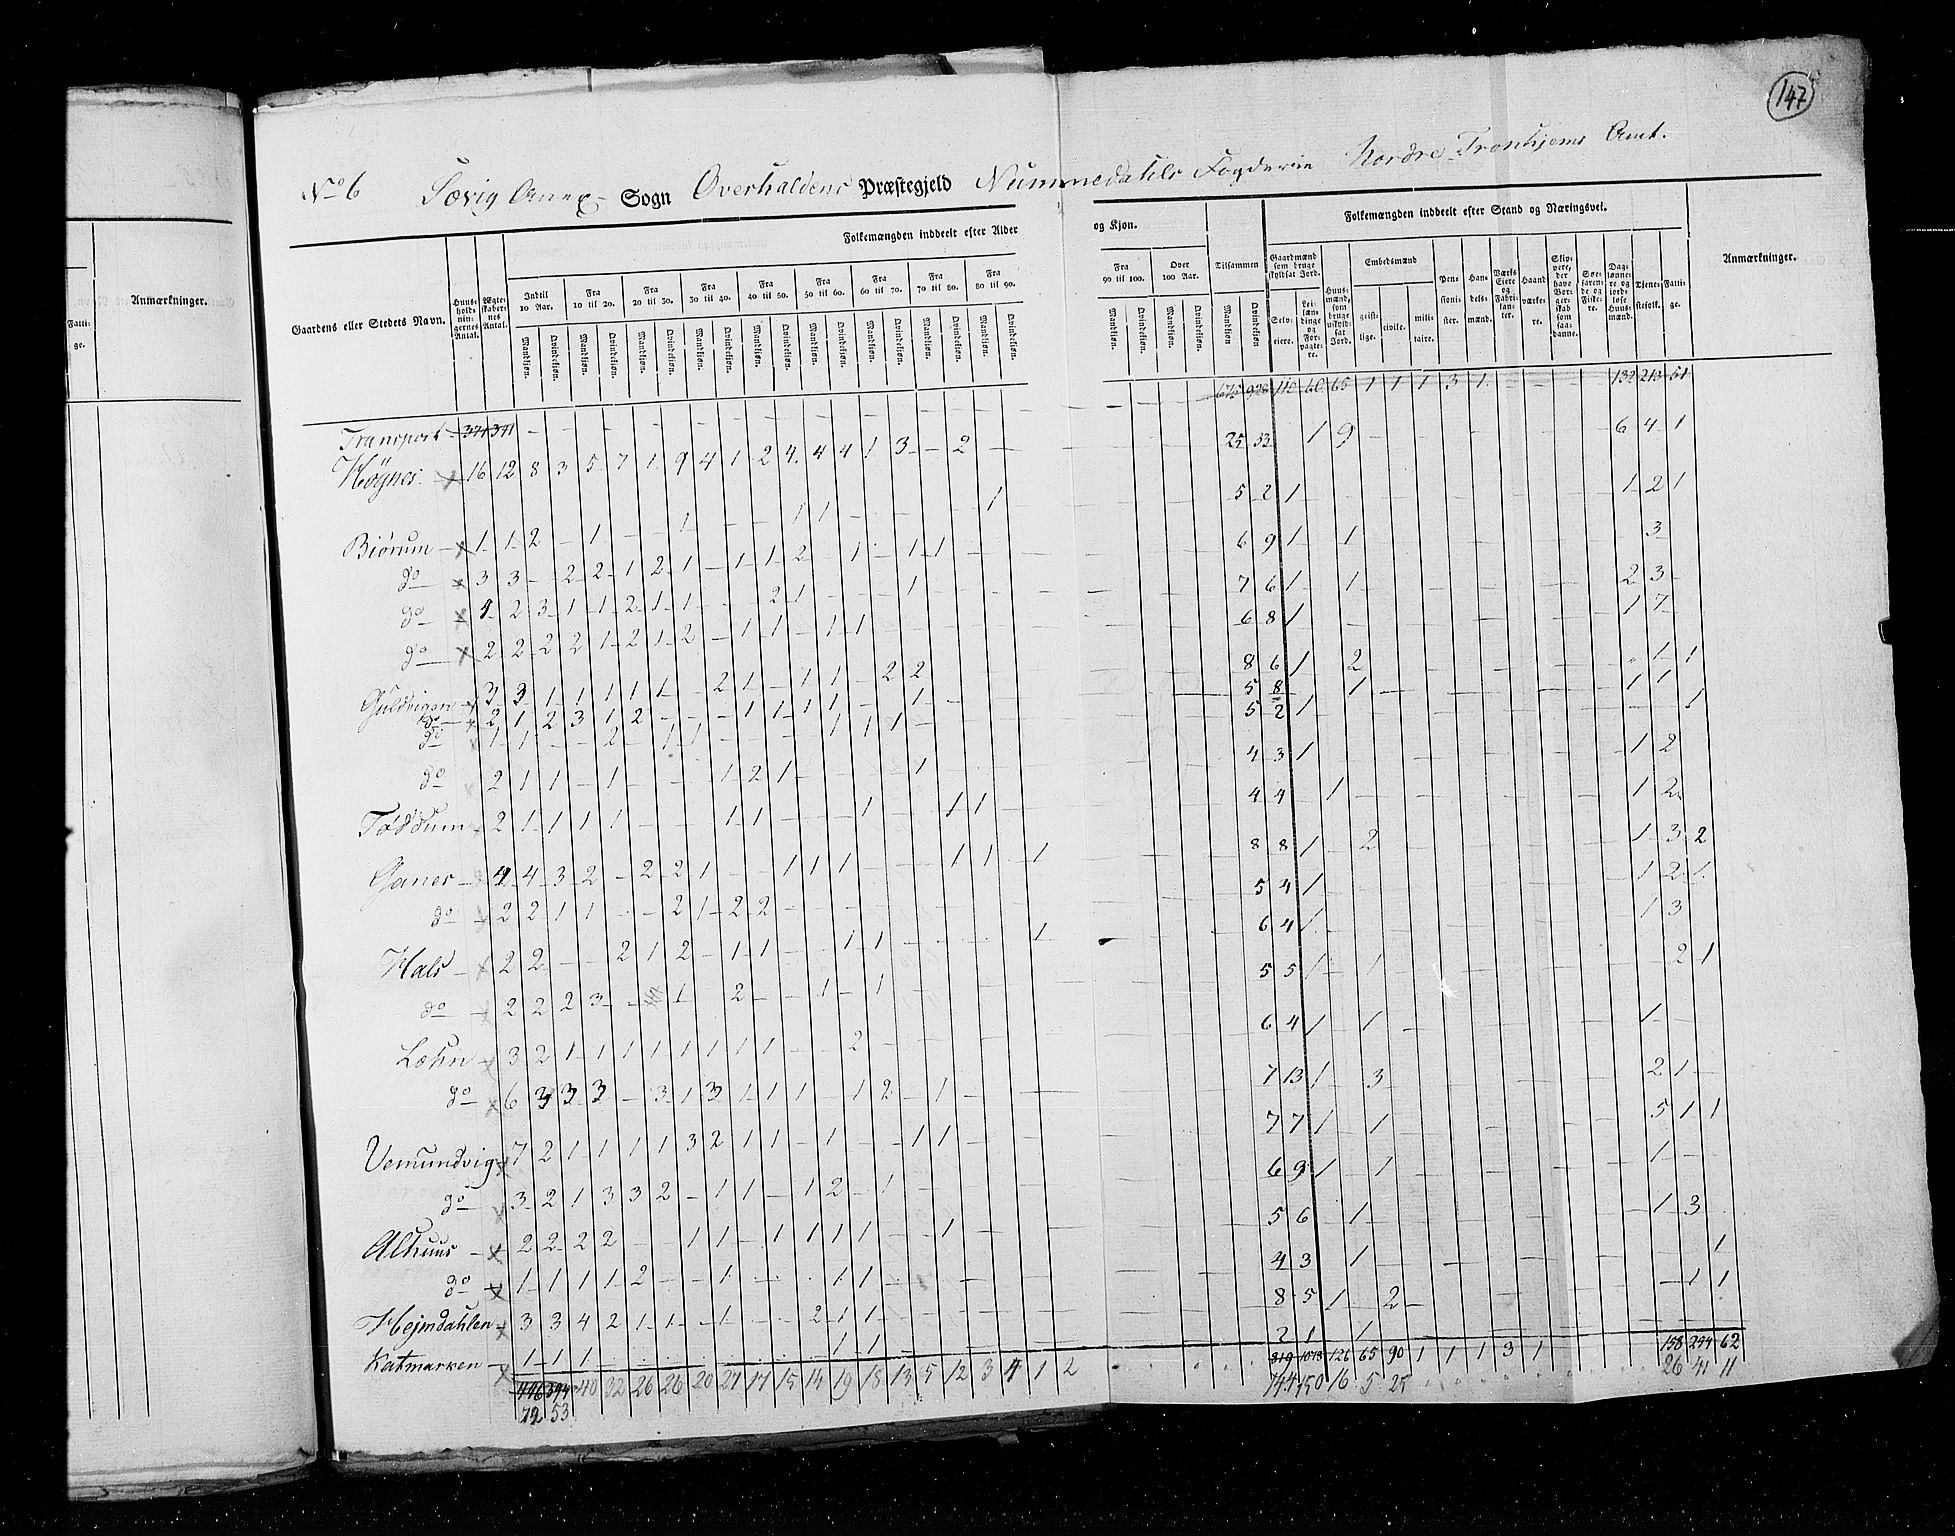 147
No 6 Sævig Anex Sogn Overhaldens Præstegjeld Nummedahls Fogderie Nordre Tronhjems Amt.
Folkemængden inddeelt efter Alder og Kjøn.
Folkemængden inddeelt efter Stand og Næringsvei.
Anmærkninger.
Fatti-
ge.
Anmærkninger.
Gaardens eller Stedets Navn.
Huus-
hold-
nin-
gernes
Antal.
Ægte-
skaber-
nes
Antal.
Indtil
10 Aar.
Fra
10 til 20.
Fra
20 til 30.
Fra
30 til 40.
Fra
40 til 50.
Fra
50 til 60.
Fra
60 til 70.
Fra
70 til 80.
Fra
80 til 90.
Fra
90 til 100.
Over
100 Aar.
Tilsammen
Mandkiøn. Qvindekiøn.
Gaardmænd
som bruge
skyldsat Jord.
Selv-
eiere.
Lei-
læn-
dinge
og
For-
pagte-
re.
Huus-
mænd,
som
bruge
uskyld-
sat
Jord.
Embedsmænd
geist-
lige.
civile.
mili-
taire.
Pen-
sioni-
ster.
Han-
dels-
mænd.
Værks
Eiere
og
Fabri-
kan-
ter.
Haand
værke-
re.
Skip-
pere,
der
have
Bor-
ger-
skab
som
saa-
danne.
Søe-
faren-
de og
Fiske-
re.
Dag-
lønne-
re og
jord-
løse
Huus-
mænd.
Tjene-
stefolk.
Fatti-
ge.
Transport 371 341 675 928 110 60 65 1 1 1 3 1 132 213 51
Høynes 16 12 8 3 5 7 1 9 4 1 2 4 4 4 1 3 - 2 25 33 1 9 6 4 1
Biørum 1 1 2 - 1 - - 1 - - - 1 1 - - - - - 1 5 2 1 1 2 1
do 3 3 - 2 2 1 2 1 - 1 1 2 - 1 - 1 1 6 9 1 1 3
do 4 2 3 1 1 2 1 1 - - - 2 1 - - - 1 7 6 1 1 2 3
do 2 2 2 2 1 2 1 2 - 1 1 - 1 1 6 8 1 1 7
Guldvigen 3 3 1 1 1 1 1 - 2 1 - 1 1 - 2 2 8 6 1 2 1 1
do 2 1 2 3 1 2 - - - 1 1 1 1 - - 1 - 5 8 1 1 1
do 1 1 - - 2 - 1 1 - - - - 1 1 1 - 5 2 1 1
do 2 1 1 - 1 - - - 1 2 1 - - - - 1 4 3 1 1 2
Føddum 2 1 1 1 1 - - - 1 1 - - - 1 - - 1 1 4 4 1 1 2
Ganes 4 4 3 2 - 2 2 1 - - 1 1 1 - - - 1 1 1 8 8 1 2 1 3 2
do 2 2 1 1 - - 2 1 2 2 5 4 1 1 2 1
Hals 2 2 - - 2 1 2 - 1 1 - - 1 1 - - - - - 1 6 4 1 1 3
do 2 2 2 3 - - 1 - 2 - - 1 - 1 5 5 1 1 2 1
Læhn 3 2 1 1 1 1 1 1 1 1 - - 2 6 4 1 1 1
do 6 3 3 3 - 3 1 3 1 1 1 - 1 2 - 1 7 13 1 3 2 1
Vemundvig 7 2 1 1 1 1 3 2 1 1 - 1 - - 1 1 7 7 1 1 5 1 1
do 3 2 1 3 3 2 - 1 1 - 1 2 - 1 6 9 1 1 1
Alhuus 2 2 2 2 - - 1 1 - 1 1 1 1 - - 1 5 6 1 1 3
do 1 1 1 1 2 - - 1 - - - 1 1 4 3 1 1
Hejmdahlen 3 3 4 2 1 1 - 1 - - 2 1 1 8 5 1 2 1 1
Katmarken 1 1 1 - - - - - - - - 1 1 2 1 1
446 394 40 32 26 26 20 27 17 15 14 19 18 13 5 12 3 4 1 2 819 1078 126 65 90 1 1 1 3 1 158 254 62
72 53 144 150 16 5 25 26 41 11